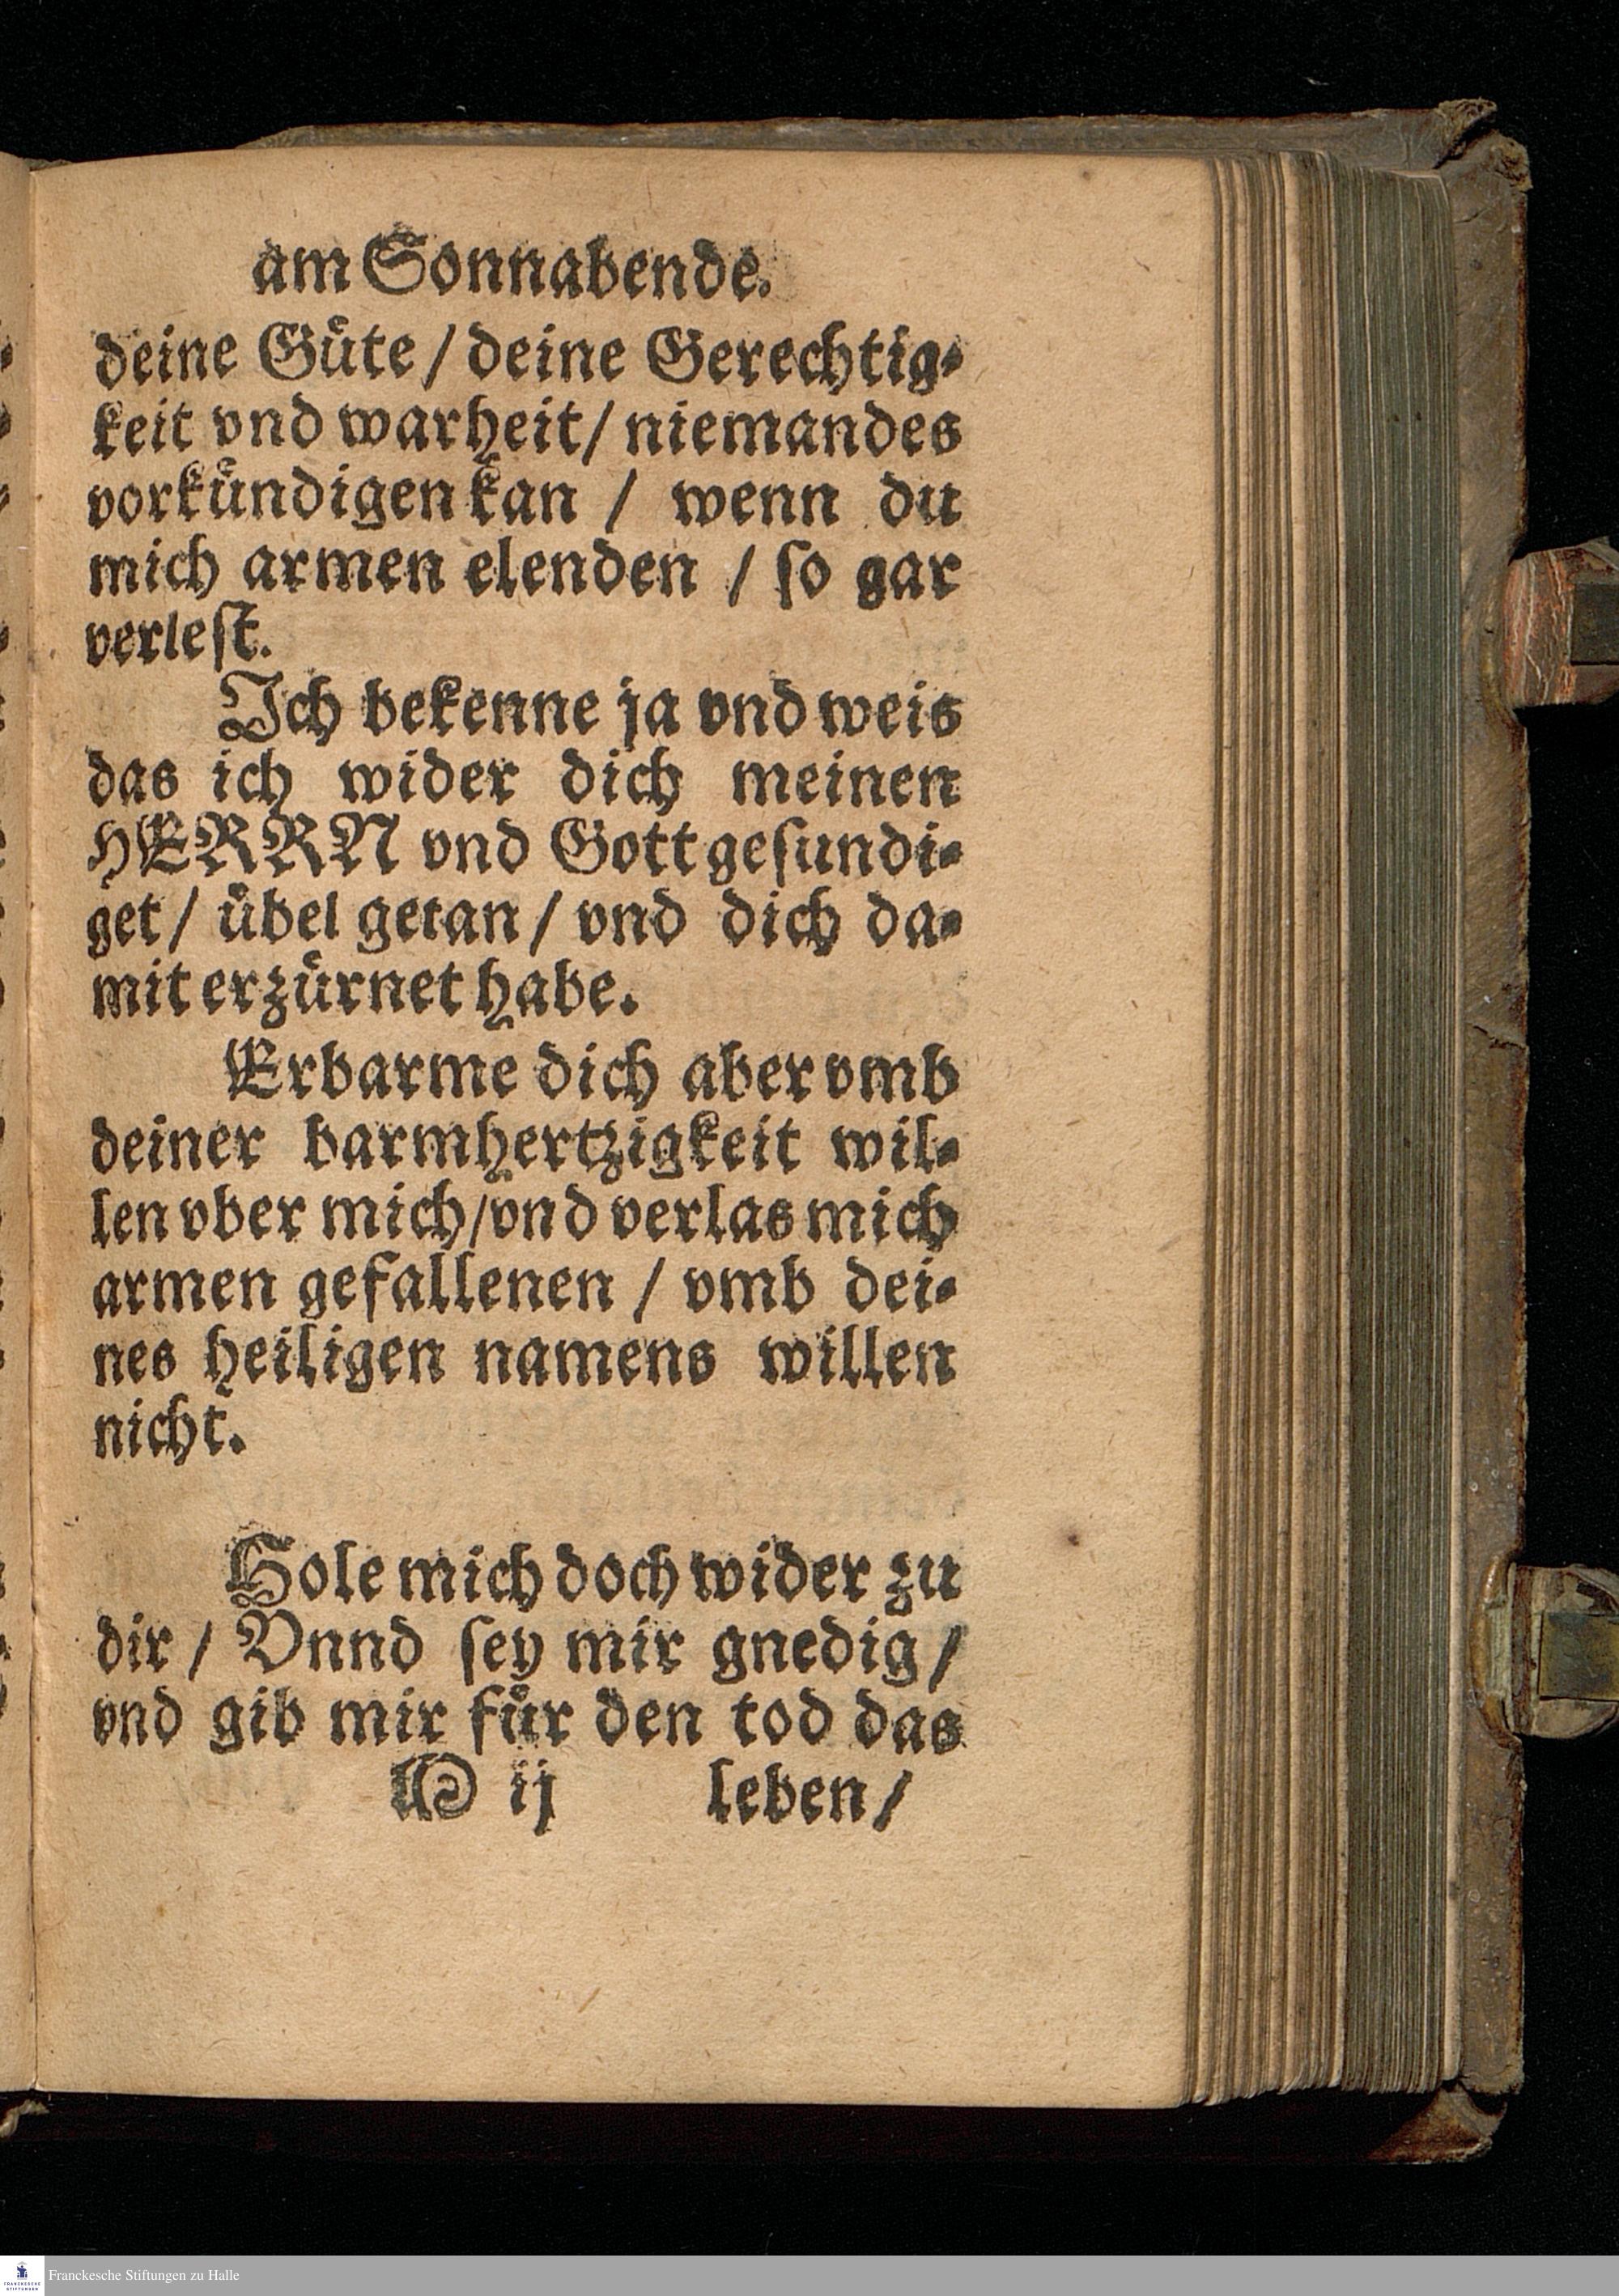 am Sonnabende.
deine Guͤte / deine Gerechtig⸗
keit vnd warheit / niemandes
vorkuͤndigen kan / wenn du
mich armen elenden / ſo gar
verleſt.
Ich bekenne ja vnd weis
das ich wider dich meinen
HERRN vnd Gott geſundi⸗
get / uͤbel getan / vnd dich da⸗
mit erzuͤrnet habe.
Erbarme dich aber vmb
deiner barmhertzigkeit wil⸗
len vber mich / vnd verlas mich
armen gefallenen / vmb dei⸗
nes heiligen namens willen
nicht.
Hole mich doch wider zu
dir / Vnnd ſey mir gnedig /
vnd gib mir fuͤr den tod das
ij leben /
Franckesche Stiftungen zu Halle
FRANCKESCHE
STIFTUNGEN